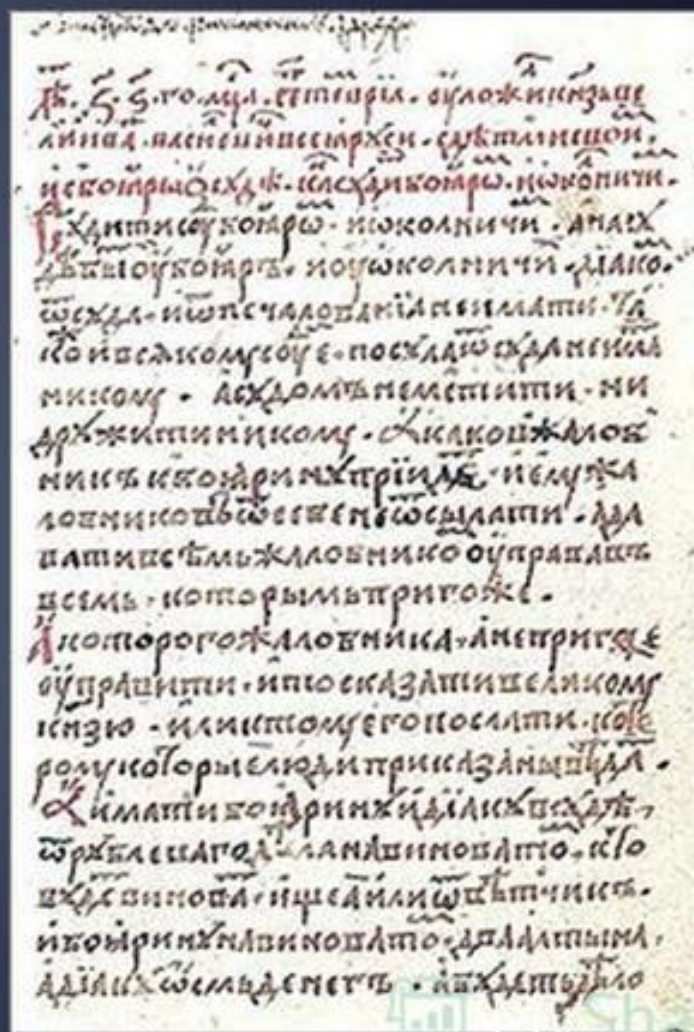 лѣ҃. ҂з҃. ѕ҃. го. мц҃а. септеврїа. оуложи кн҃зь ве
ликїи ива василевичь всеа рѹси. с дѣтми своими.
и с боꙗры о сѹдѣ. како сѹдити боꙗрѡ. и ѡколничи.
Сѹдити сѹ боꙗрѡ. и ѡколничи. а на сѹ
дѣ быти оу боꙗръ. и оу ѡколничи. дїако.
ѿ сѹда. и ѿ печалованїа не имати. та
ко и всякомѹ соуе. посѹла ѿ сѹда не има
никомѹ. а сѹдомъ не мстити. ни
дрѹжити никомѹ. А каков жалоб
никъ к боꙗринѹ прїиде. и емѹ жа
лобниковъ ѿ себе не ѿсылати. а да
вати всѣмь жалобнико оуправа въ
всемь. которымь пригоже.
А которого жалобника. а непригоже
оуправити. и то сказати великомѹ
кн҃зю. или к томѹ его послати. кото
ромѹ которые люди приказаны вѣда.
А имати боꙗринѹ и дїакѹ в сѹдѣ,
ѿ рѹблеваго дѣла на виновато. кто
бѹде винова. ищеа или ѿвѣтчикъ.
и боꙗринѹ на виновато. два алтына.
а дїакѹ ѡсмь денегъ. а бѹдеть дѣло